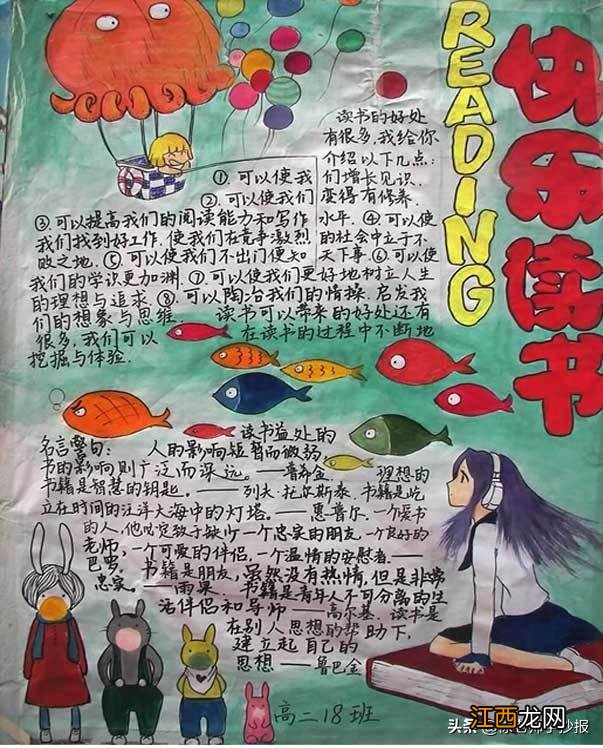 快乐读书
READING
读书的好处
有很多,我给你
介绍以下几点:
①.可以使我
们增长见识.
②.可以使我们
变得有修养.
③.可以提高我们的阅读能力和写作
水平.④.可以使
我们找到好工作.使我们在竞争激烈
的社会中立于不
败之地.⑤.可以使我们不出门便知
天下事.⑥.可以使
我们的学识更加渊.⑦.可以使我们更好地树立人生
的理想与追求.⑧.可以陶冶我们的情操.启发我
们的想象与思维.
读书可以带来的好处还有
很多,我们可以
在读书的过程中不断地
挖掘与体验.
名言警句:
读书益处的
人的影响短暂而微弱,
书的影响则广泛而深远。——普希金.
理想的
书籍是智慧的钥匙。——列夫·托尔斯泰.书籍是屹
立在时间的汪洋大海中的灯塔。——惠普尔.一个爱书
的人,他必定致于缺少一个忠实的朋友.一个良好的
老师,一个可爱的伴侣,一个温情的安慰者.——
巴罗.
书籍是朋友,虽然没有热情,但是非常
忠实。
——雨果.
书籍是青年人不可分离的生
活伴侣和导师——高尔基.读书是
在别人思想的帮助下,
建立起自己的
思想——鲁巴金
高二18班
头条
江西龙网